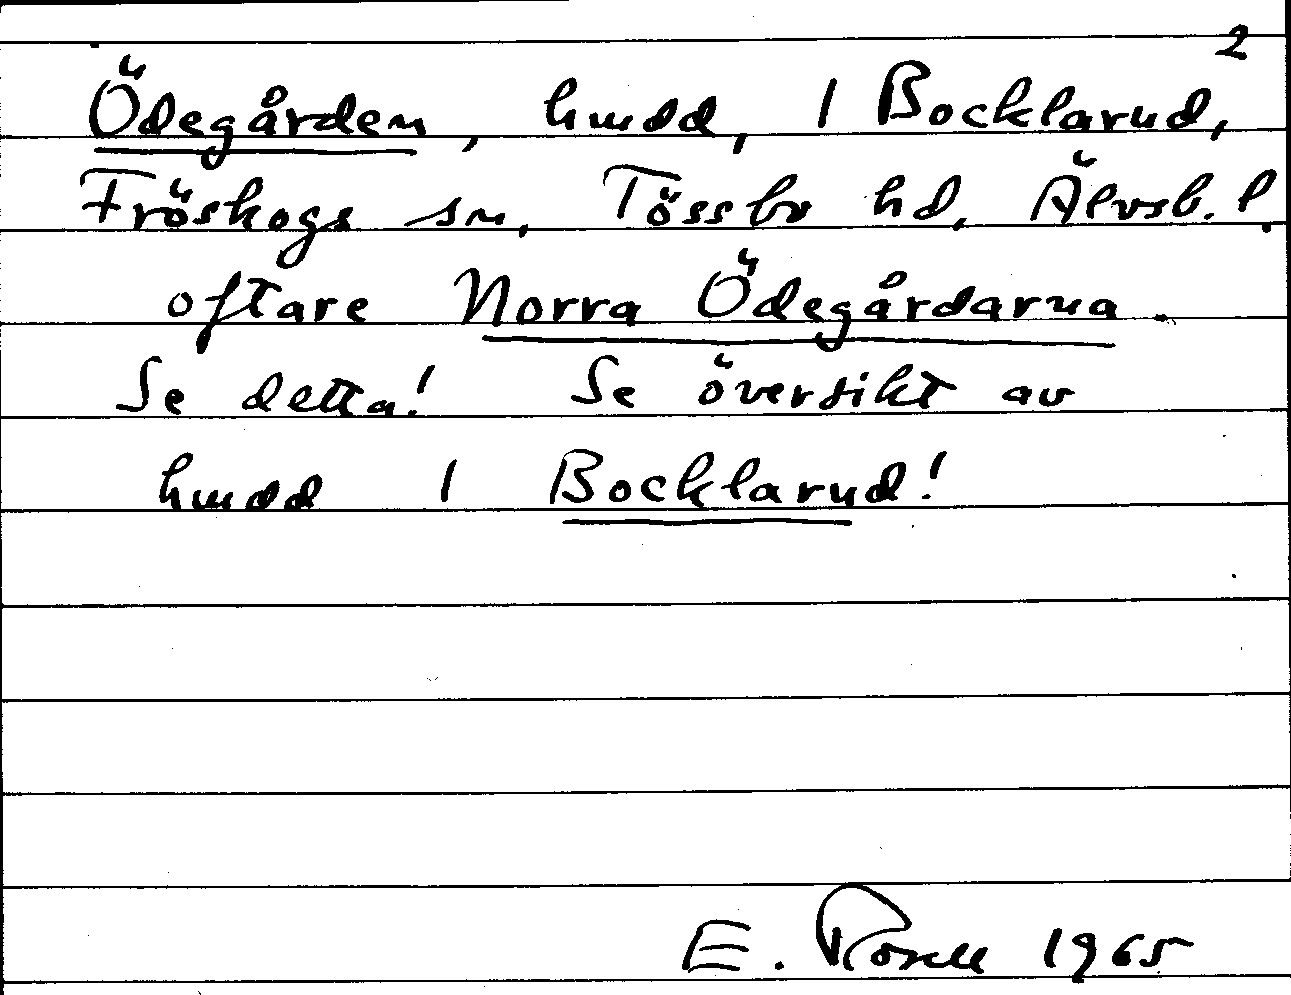 2
Ödegården, hmdd, 1 Bocklarud,
Fröskogs sn, Tössbo hd, Älvsb. l.
oftare Norra Ödegårdarna.
Se detta! Se översikt av
hmdd 1 Bocklarud!
E. Rosell 1965